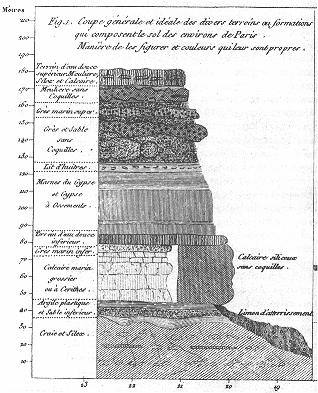 Mètres
Fig. 1. Coupe générale et idéale des divers terreins ou formations
qui composent le sol des environs de Paris.
Manière de les figurer et couleurs qui leur sont propres.
210
200
190
180
170
160
150
140
130
120
110
100
90
80
70
60
50
40
30
20
10
Terrein d'eau douce
supérieur. Meulière,
Silex et Calcaire
Meulière sans
Coquilles.
Grès marin super.
Grès et Sable
sans
Coquilles.
Lit d'huîtres.
Marnes du Gypse
et Gypse
à Ossemens.
Terrein d'eau douce
inférieur.
Grès marin infér.
Calcaire marin
grossier
ou à Cerithes
Argile plastique
et Sable inférieur.
Craie et Silex.
Calcaire siliceux
sans coquilles.
Limon d'atterrissement
23
22
21
20
19